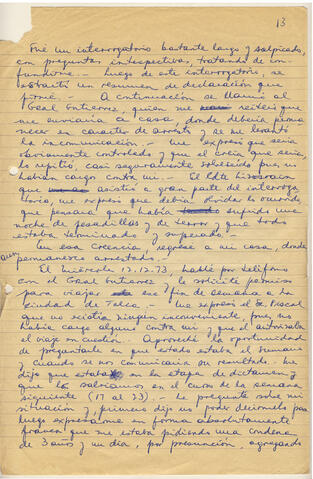 13
Fué un interrogatorio bastante largo y salpicado,
con preguntas introspectivas, tratando de con-
fundirme.- Luego de este interrogatorio, se
extractó un resumen de declaración que
firmé.- A continuación se llamó al
Gral Gutierrez, quien me reiteró que
me enviaría a casa, donde debería perma
necer en caracter de arresto y se me levantó
la incomunicación.- Me expresó que sería
nuevamente controlado y que el creía que sería,
les repito, casi seguramente sobreseido pues no
habían cargo contra mí.- El Cdte
que asistió a gran parte del interroga
torio, me expresó que debía olvidar lo ocurrido,
que pensara que había sufrido una
noche de pesadillas y de terror, y que todo
estaba terminado y superado.-
En esa creencia, regresé a mi casa, donde
aun permanecí arrestado.-
El miércoles 12.12.73, hablé por teléfono
con el Gral Gutierrez y le solicité permiso
para viajar ese fin de semana a la
ciudad de Talca.- Me expresó el Sr. Fiscal
que no existía ningún inconveniente, pues no
había cargo alguno contra mí y que él autorizaba
el viaje en cuestión. Aproveché la oportunidad
de preguntarle en que estado estaba el sumario
y cuando se nos comunicaría su resultado.- Me
dijo que estaba en la etapa de dictamen y
que lo sabríamos en el curso de la semana
siguiente (17 al 23).- Le pregunté sobre mi
situación y, primero dijo no poder decírmelo para
luego expresarme en forma absolutamente
franca que me estaba pidiendo una condena
de 3 años y un día, por presunción, agregando